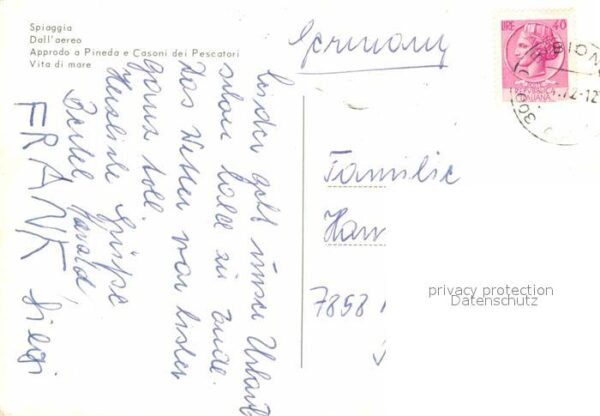 Spiaggia
Dall'aereo
Approdo a Pineda e Casoni dei Pescatori
Vita di mare
Germany
LIRE 40
REPVBBLICA
ITALIANA
BION
-12
Leider geht unser Urlaub
schon bald zu Ende.
Das Wetter war bisher
ganz toll.
Herzliche Grüße
Harald,
FRANK
Familie
7858
privacy protection
Datenschutz